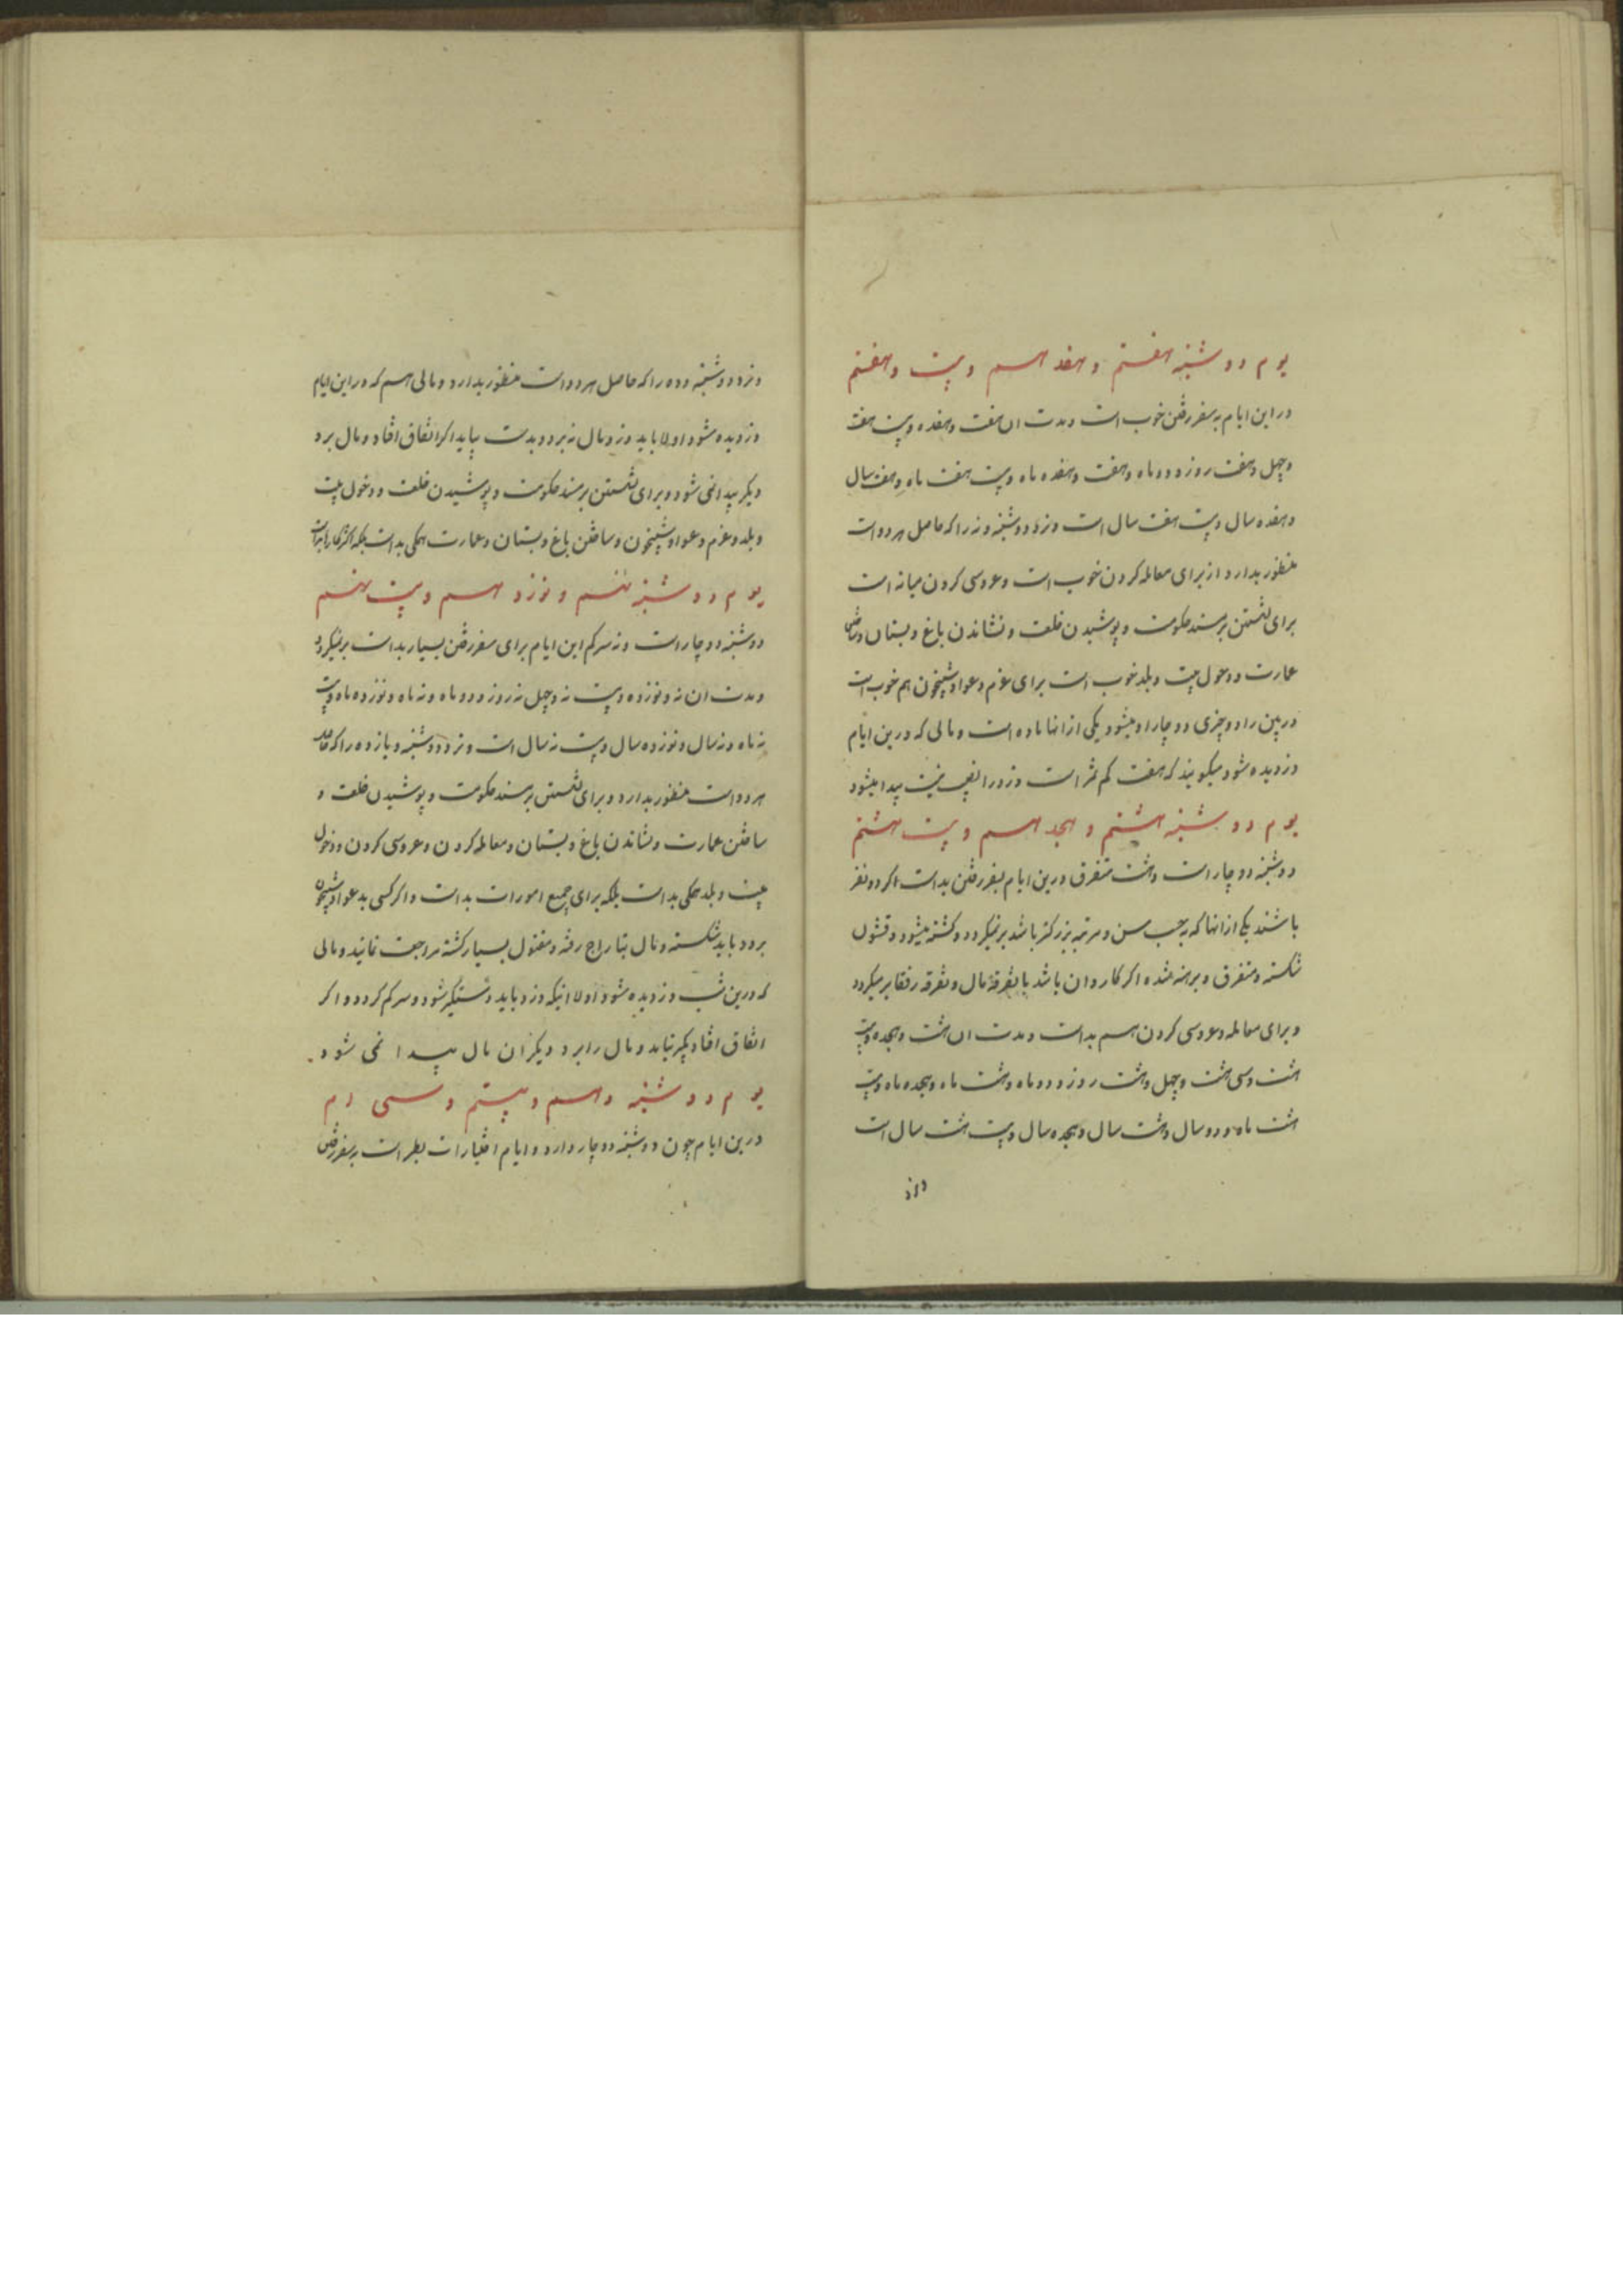 یوم دوشنبه هفتم و هفدهم و بیست و هفتم
در این ایام به سفر رفتن خوب است و مدت ان هفت و هفده و بیست هفت
و چهل و هفت روز و دو ماه و هفت و هفده ماه و بیست هفت ماه و هفت سال
و هفده سال و بیست هفت سال است و نزد دوشنبه و نه را که حاصل هر دو است
منظور بدارد از برای معامله کردن خوب است و عروسی کردن میانه است
برای نشستن بر مسند حکومت و پوشیدن خلعت و نشاندن باغ و بستان و ساختن
عمارت و دخول بیت و بلد خوب است برای عزم دعوا و شبیخون هم خوب است
در بین راه دو چیزی دو چار او میشود یکی از انها ماده است و مالی که درین ایام
دزدیده شود میگویند که هفت کم نثر است و زود را نیست پیدا میشود
یوم دوشنبه هشتم و هجدهم و بیست هشتم
دوشنبه دو چار است و هشت متفرق درین ایام بسفر رفتن بد است اکر دو نفر
باشند یکی از انها که بحسب سن و مرتبه بزرکتر باشد برنمیکردد و کشته میشود و قشون
شکسته و متفرق و برهنه شده اکر کاروان باشد با تفرقه مال و تفرقه رفقا برمیکردد
و برای معامله و عروسی کردن هم بد است و مدت ان هشت و هجده و بیست
هشت و سی هشت و چهل و هشت روز و دو ماه و هشت ماه و هجده ماه و بیست
هشت ماه و دو سال و هشت سال و هجده سال و بیست هشت سال است
و نزد دوشنبه و ده را که حاصل هر دو است منظور بدارد و مالی هم که در این ایام
دزدیده شود اولا باید دزد مال نبرد و بدست بیاید اکر اتفاق افتاد و مال برد
دیکر پیدا نمی شود و برای نشستن بر مسند حکومت و پوشیدن خلعت و دخول بیت
و بلد و عزم دعوا و شبیخون و ساختن باغ و بستان و عمارت همکی بد است بلکه اکثر کارها
یوم دوشنبه نهم و نوزدهم و بیست نهم
دوشنبه دو چار است و نه سرکم این ایام برای سفر رفتن بسیار بد است برنمیکردد
و مدت ان نه و نوزده و بیست نه و چهل نه روز و دو ماه و نه ماه و نوزده ماه و بیست
نه ماه و نه سال و نوزده سال و بیست نه سال است و نزد دوشنبه و یازده را که حاصل
هر دو است منظور بدارد و برای نشستن بر مسند حکومت و پوشیدن خلعت و
ساختن عمارت و نشاندن باغ و بستان و معامله کردن و عروسی کردن و دخول
بیت و بلد همکی بد است بلکه برای جمیع امورات بد است و اکر کسی بدعوا و شبیخون
برود باید شکسته و مال بتاراج رفته و مقتول بسیار کشته مراجعت نمایند و مالی
که درین شب دزدیده شود اولا اینکه دزد باید دستگیر شود و سرکم کردد و اکر
اتفاق افتاد بگیر نیاید و مال را برد دیکر ان مال پیدا نمی شود
یوم دوشنبه دهم و بیستم و سی ام
درین ایام چون دوشنبه دو چار دارد و ایام اختیارات بطر است بسفر رفتن